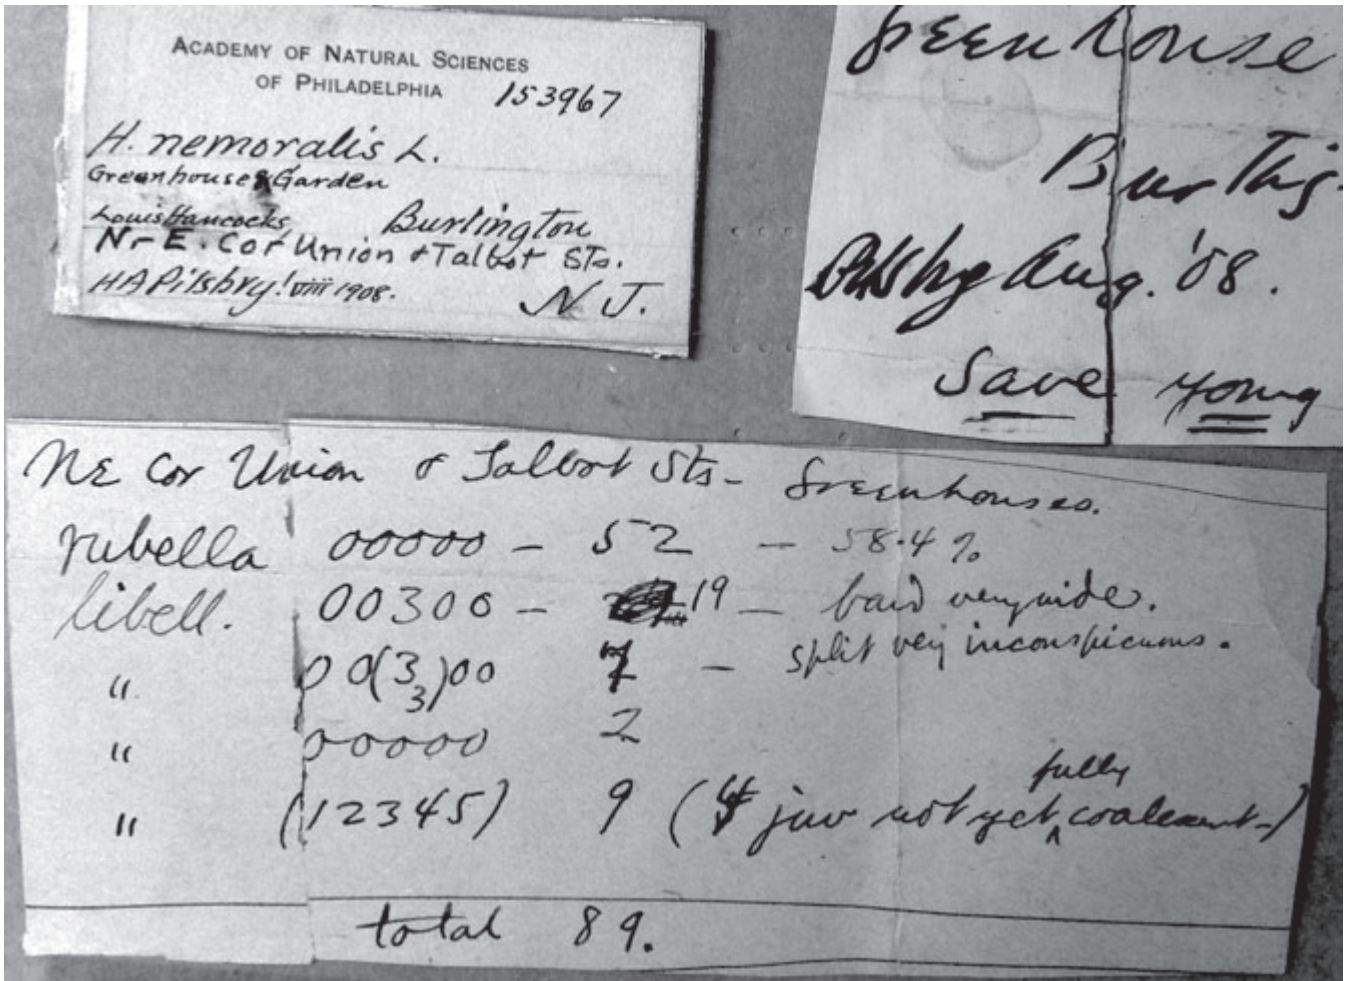 ACADEMY OF NATURAL SCIENCES
OF PHILADELPHIA 153967
H. nemoralis L.
Greenhouse & Garden
Louis Hancocks, Burlington
N-E. Cor Union & Talbot Sts.
HAPilsbry! viii 1908. N. J.
Greenhouse
Burltng.
Pilsbry Aug. '08.
Save young
NE Cor Union & Talbot Sts- Greenhouses.
rubella 00000 - 52 - 58.4 %
libell. 00300 - 19 - band very wide.
" 00(3 3)00 7 - split very inconspicuous.
" 00000 2
" (12345) 9 (4 juv not yet fully coalescent-)
total 89.